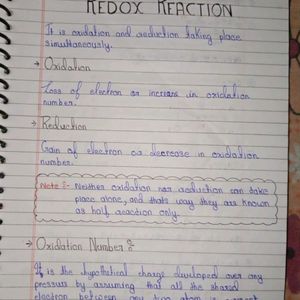 REDOX REACTION
It is oxidation and reduction taking place
simultaneously.
→ Oxidation
Loss of electron or increase in oxidation
number.
→ Reduction
Gain of electron or decrease in oxidation
number.
Note :- Neither oxidation nor reduction can take
place alone, and thats way they are known
as half reaction only.
→ Oxidation Number :-
It is the hypothetical charge developed over any
pressure by assuming that all the shared
electron between any two atom is